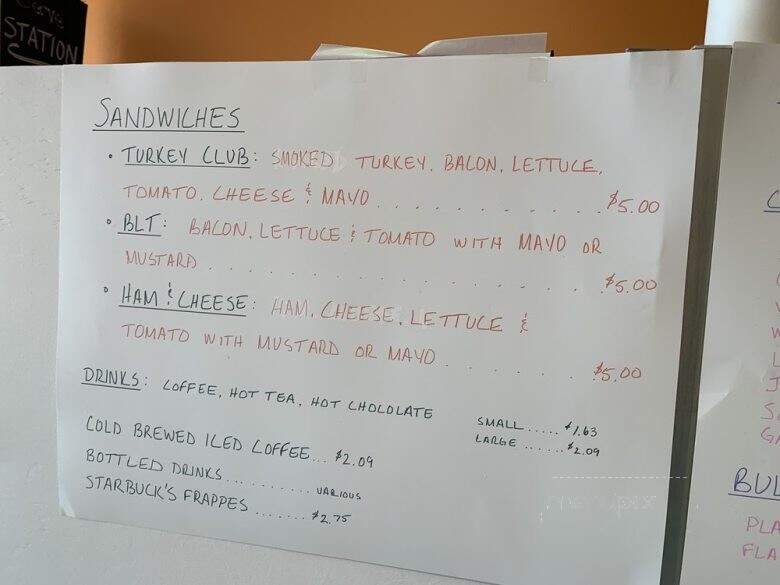 STATION
SANDWICHES
• TURKEY CLUB: SMOKED TURKEY, BACON, LETTUCE,
TOMATO, CHEESE & MAYO . . . . . . . . . . . . $5.00
• BLT: BACON, LETTUCE & TOMATO WITH MAYO OR
MUSTARD . . . . . . . . . . . . . . . . . $5.00
• HAM & CHEESE: HAM, CHEESE, LETTUCE &
TOMATO WITH MUSTARD OR MAYO . . . . . . . $5.00
DRINKS: COFFEE, HOT TEA, HOT CHOCOLATE
SMALL ..... $1.63
LARGE ...... $2.09
COLD BREWED ICED COFFEE... $2.09
BOTTLED DRINKS .......... VARIOUS
STARBUCK'S FRAPPES ....... $2.75
BUL
PLA
FLA